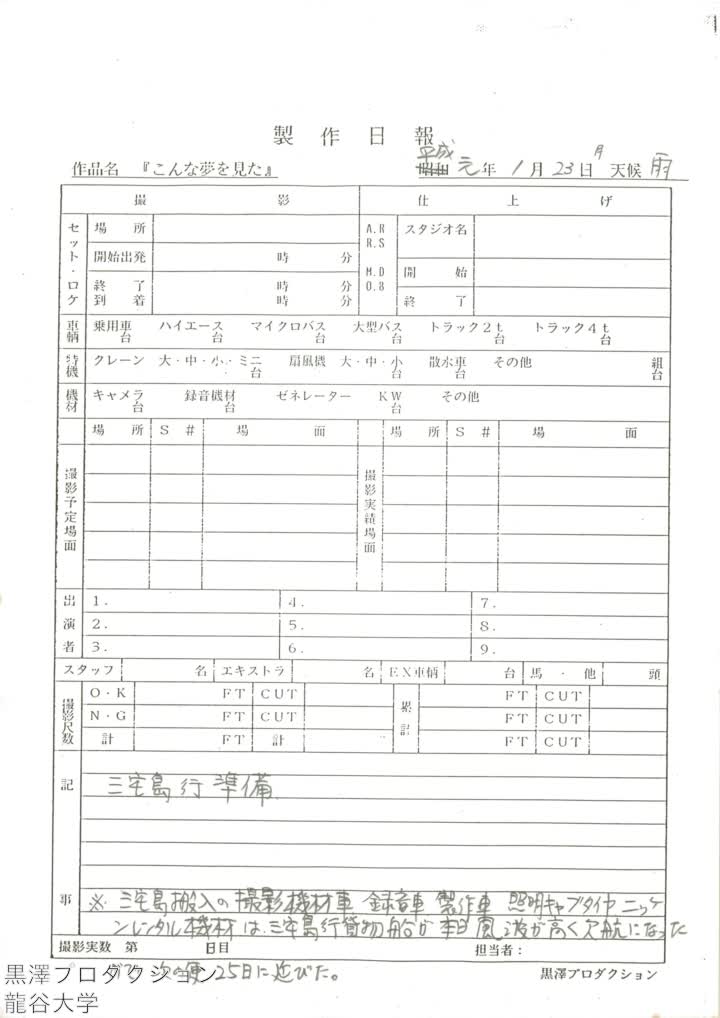 製作日報
作品名 『こんな夢を見た』 平成元年1月23日 月 天候 雨
撮影 仕上げ
セット・ロケ 場所 A.R R.S スタジオ名
開始出発 時 分 M.D 0.8 開始
終了 時 分 終了
到着 時 分
車輌 乗用車 台 ハイエース 台 マイクロバス 台 大型バス 台 トラック2t 台 トラック4t 台
特機 クレーン 大・中・小・ミニ 台 扇風機 大・中・小 台 散水車 台 その他 組 台
機材 キャメラ 台 録音機材 台 ゼネレーター KW 台 その他
場所 S# 場面 場所 S# 場面
撮影予定場面 撮影実績場面
出演者
1. 4. 7.
2. 5. 8.
3. 6. 9.
スタッフ 名 エキストラ 名 EX車輌 台 馬・他 頭
撮影尺数 O・K FT CUT 累計 FT CUT
N・G FT CUT FT CUT
計 FT 計 FT CUT
記事
三宅島行準備
※ 三宅島搬入の撮影機材車 録音車 製作車 照明キャブタイヤ ニッケ
ンレンタル機材は、三宅島行貨物船が本日風波が高く欠航になった
次の便25日に延びた。
撮影実数 第 日目 担当者:
黒澤プロダクション
黒澤プロダクション
龍谷大学